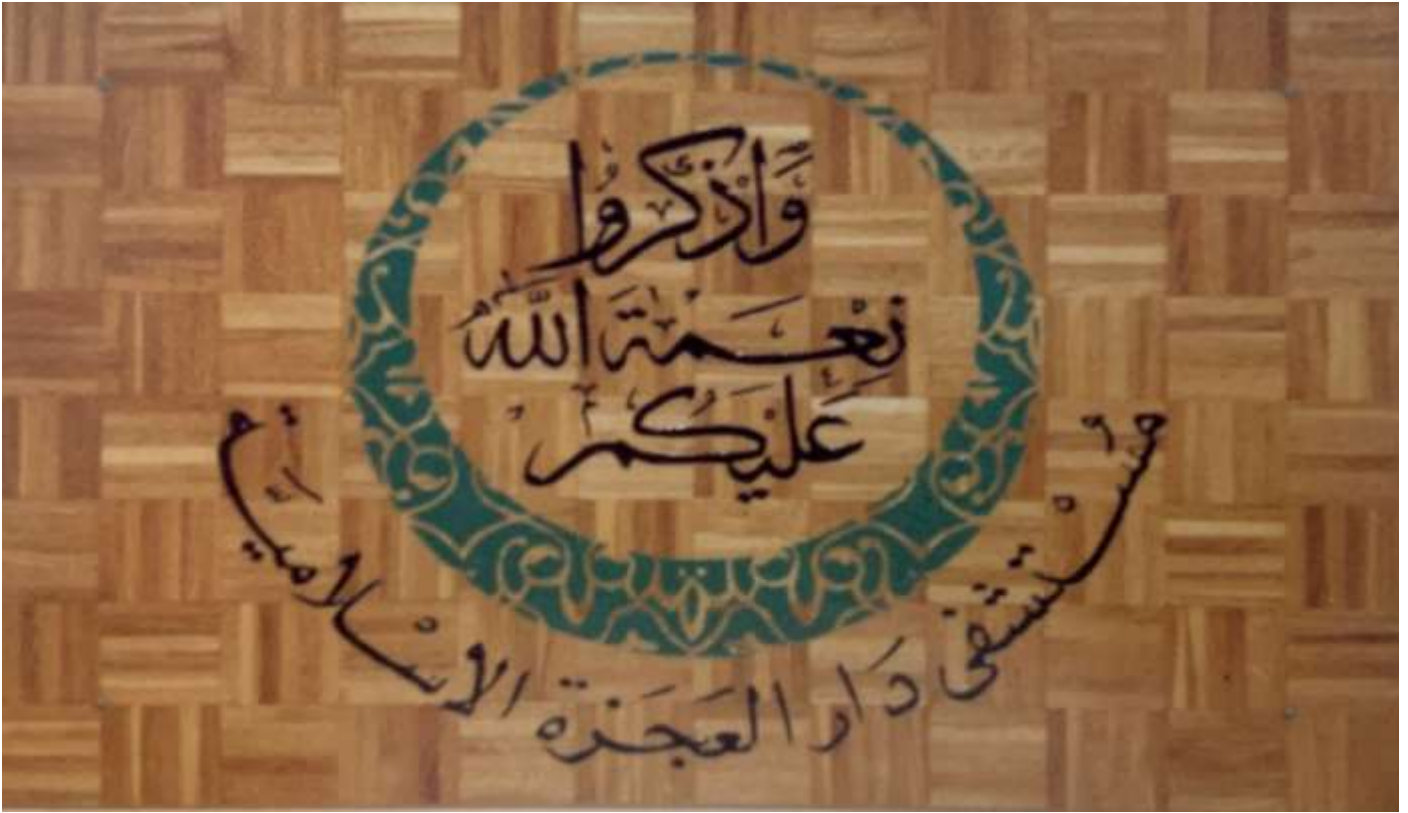 وَاذْكُرُوا
نِعْمَةَ اللَّهِ
عَلَيْكُمْ
مُسْتشفى دَار العَجَزَة الإسْلاميّة